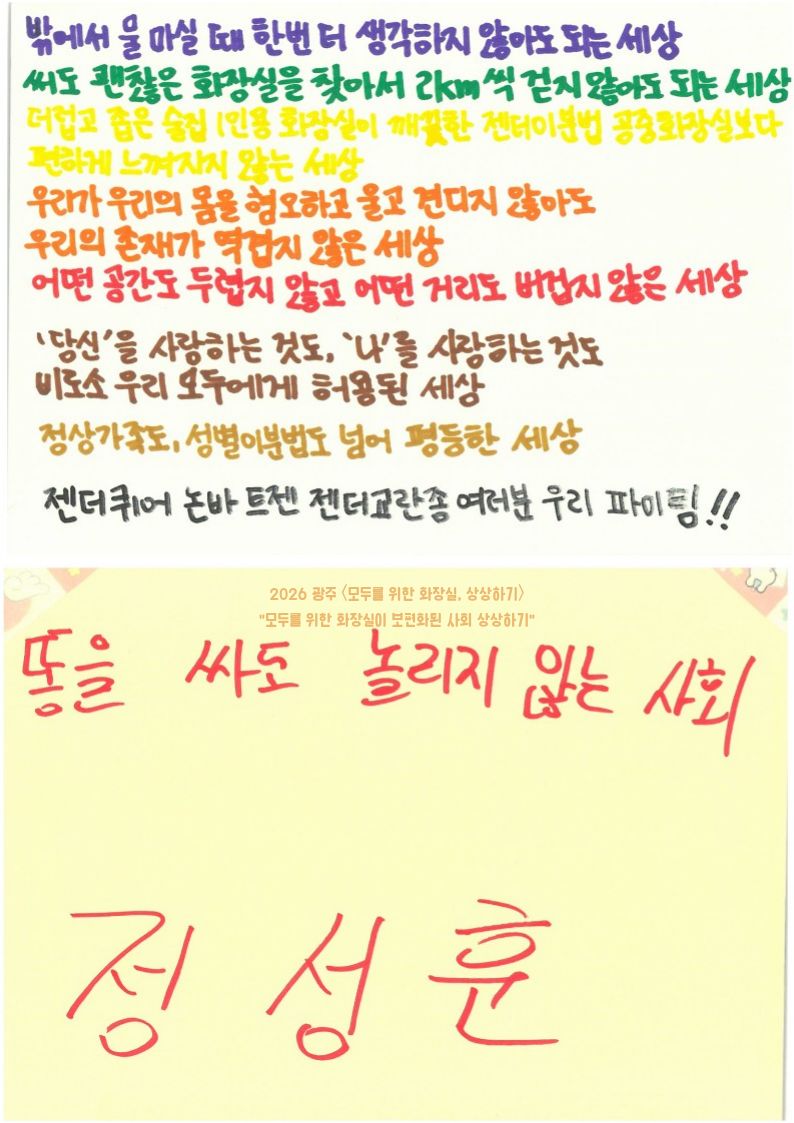 밖에서 물 마실 때 한번 더 생각하지 않아도 되는 세상
써도 괜찮은 화장실을 찾아서 2km씩 걷지 않아도 되는 세상
더럽고 좁은 술집 1인용 화장실이 깨끗한 젠더이분법 공중화장실보다
편하게 느껴지지 않는 세상
우리가 우리의 몸을 혐오하고 울고 견디지 않아도
우리의 존재가 역겹지 않은 세상
어떤 공간도 두렵지 않고 어떤 거리도 버겁지 않은 세상
'당신'을 사랑하는 것도, '나'를 사랑하는 것도
비로소 우리 모두에게 허용된 세상
정상가족도, 성별이분법도 넘어 평등한 세상
젠더퀴어 논바 트젠 젠더교란종 여러분 우리 파이팅!!
2026 광주 <모두를 위한 화장실, 상상하기>
"모두를 위한 화장실이 보편화된 사회 상상하기"
똥을 싸도 놀리지 않는 사회
정성훈